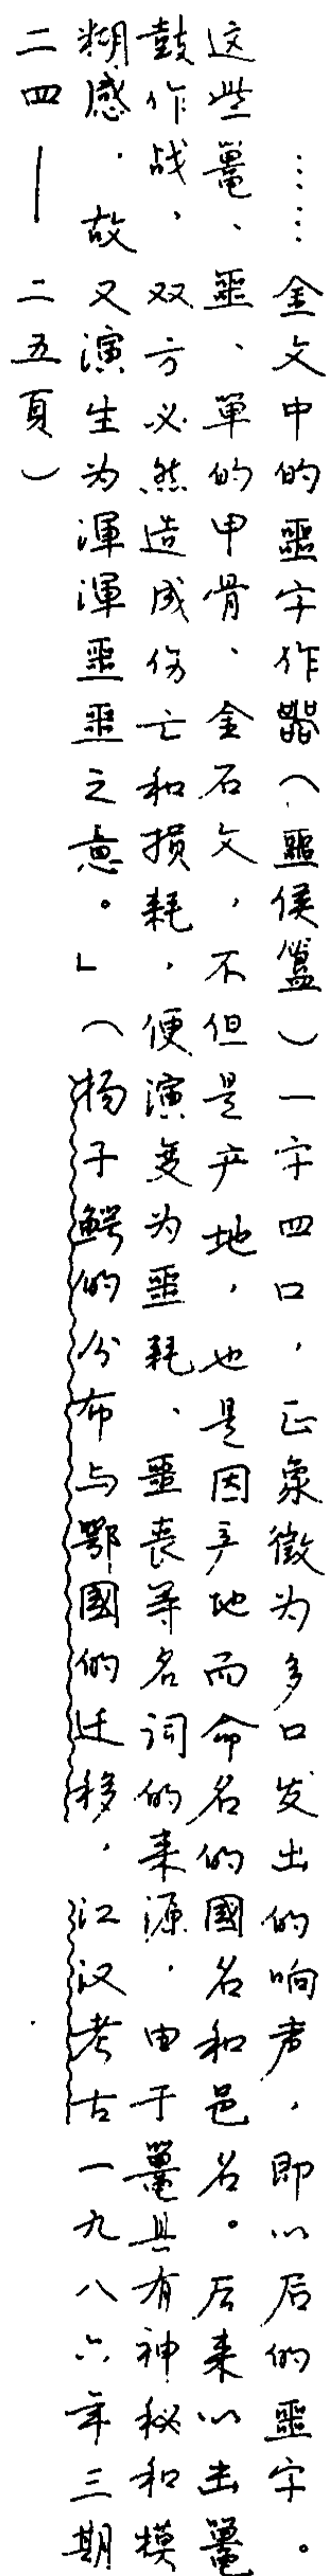 ……金文中的噩字作𠾂（噩侯簋）一字四口，正象徵为多口发出的响声，即以后的噩字。
这些鼍、噩、單的甲骨、金石文，不但是产地，也是因产地而命名的國名和邑名。后来以出鼍
鼓作战，双方必然造成伤亡和损耗，便演变为噩耗、噩丧等名词的来源，由于鼍具有神秘和模
糊感．故又演生为渾渾噩噩之意。」（杨子鳄的分布与鄂國的迁移，江汉考古一九八六年三期
二四—二五頁）